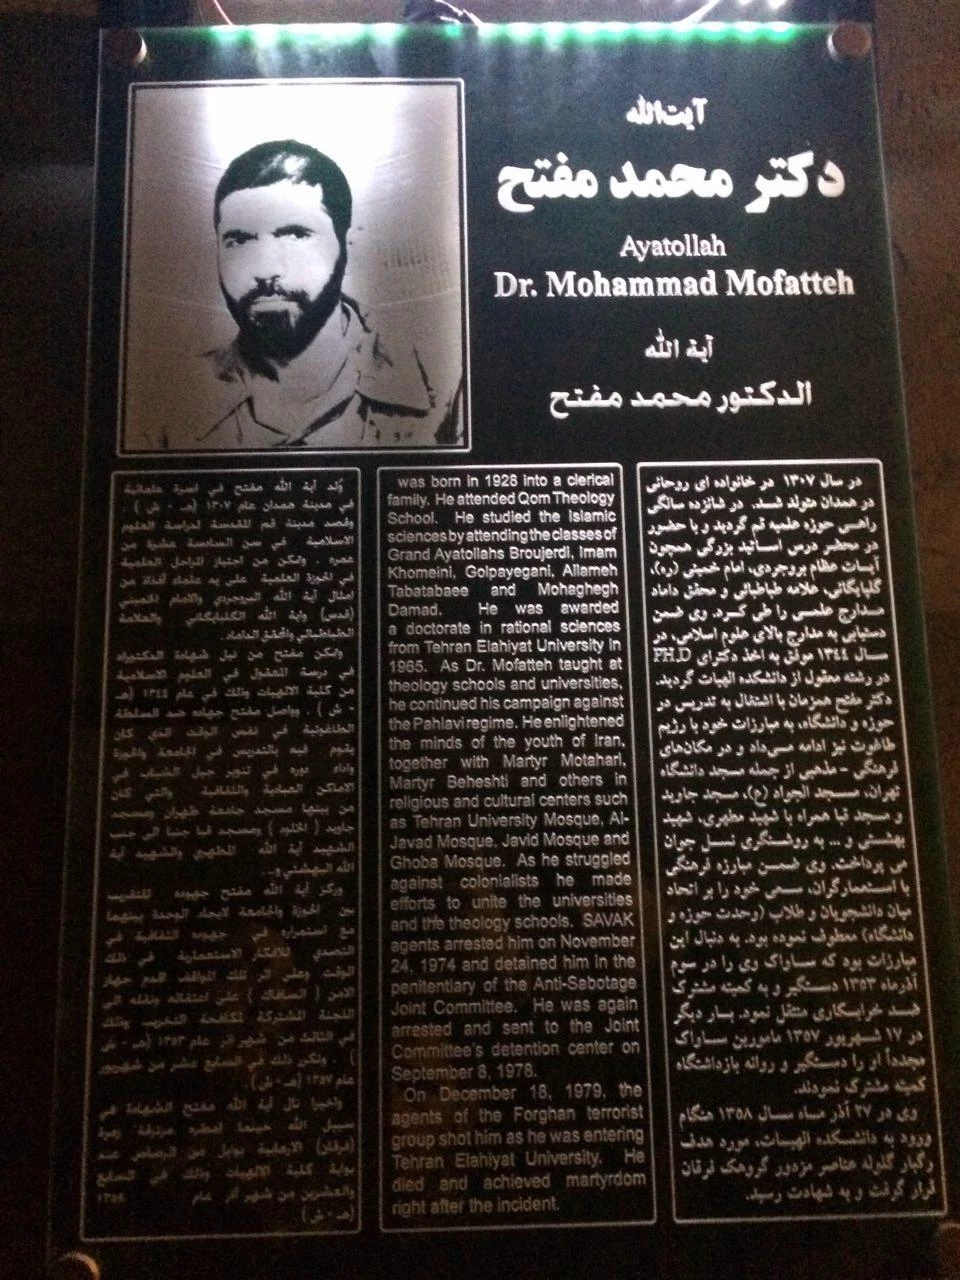 آیت‌الله
دکتر محمد مفتح
Ayatollah
Dr. Mohammad Mofatteh
آية الله
الدكتور محمد مفتح
در سال ۱۳۰۷ در خانواده ای روحانی
در همدان متولد شد. در شانزده سالگی
راهی حوزه علمیه قم گردید و با حضور
در محضر درس اساتید بزرگی همچون
آیات عظام بروجردی، امام خمینی (ره)،
گلپایگانی، علامه طباطبائی و محقق داماد
مدارج علمی را طی کرد. وی ضمن
دستیابی به مدارج بالای علوم اسلامی، در
سال ۱۳۴٤ موفق به اخذ دکترای PH.D
در رشته معقول از دانشکده الهیات گردید.
دکتر مفتح همزمان با اشتغال به تدریس در
حوزه و دانشگاه، به مبارزات خود با رژیم
طاغوت نیز ادامه می‌داد و در مکان‌های
فرهنگی - مذهبی از جمله مسجد دانشگاه
تهران، مسجد الجواد (ع)، مسجد جاوید
و مسجد قبا همراه با شهید مطهری، شهید
بهشتی و ... به روشنگری نسل جوان
می پرداخت. وی ضمن مبارزه فرهنگی
با استعمارگران، سعی خود را بر اتحاد
میان دانشجویان و طلاب (وحدت حوزه و
دانشگاه) معطوف نموده بود. به دنبال این
مبارزات بود که ساواک وی را در سوم
آذرماه ۱۳۵۳ دستگیر و به کمیته مشترک
ضد خرابکاری منتقل نمود. بار دیگر
در ۱۷ شهریور ۱۳۵۷ مامورین ساواک
مجدداً او را دستگیر و روانه بازداشتگاه
کمیته مشترک نمودند.
وی در ۲۷ آذر ماه سال ۱۳۵۸ هنگام
ورود به دانشکده الهیات، مورد هدف
رگبار گلوله عناصر مزدور گروهک فرقان
قرار گرفت و به شهادت رسید.
was born in 1928 into a clerical
family. He attended Qom Theology
School. He studied the Islamic
sciences by attending the classes of
Grand Ayatollahs Broujerdi, Imam
Khomeini, Golpayegani, Allameh
Tabatabaee and Mohaghegh
Damad. He was awarded
a doctorate in rational sciences
from Tehran Elahiyat University in
1965. As Dr. Mofatteh taught at
theology schools and universities,
he continued his campaign against
the Pahlavi regime. He enlightened
the minds of the youth of Iran,
together with Martyr Motahari,
Martyr Beheshti and others in
religious and cultural centers such
as Tehran University Mosque, Al-
Javad Mosque, Javid Mosque and
Ghoba Mosque. As he struggled
against colonialists he made
efforts to unite the universities
and the theology schools. SAVAK
agents arrested him on November
24, 1974 and detained him in the
penitentiary of the Anti-Sabotage
Joint Committee. He was again
arrested and sent to the Joint
Committee's detention center on
September 8, 1978.
On December 18, 1979, the
agents of the Forghan terrorist
group shot him as he was entering
Tehran Elahiyat University. He
died and achieved martyrdom
right after the incident.
ولد آية الله مفتح في اسرة علمائية
في مدينة همدان عام ۱۳۰۷ (هـ - ش) .
وقصد مدينة قم المقدسة لدراسة العلوم
الاسلامية في سن السادسة عشرة من
عمره . وتمكن من اجتياز المراحل العلمية
في الحوزة العلمية على يد علماء أفذاذ من
امثال آية الله البروجردي والامام الخميني
(قدس) وآية الله الكلبايكاني والعلامة
الطباطبائي والمحقق الداماد.
وتمكن مفتح من نيل شهادة الدكتوراه
في درسة المعقول في العلوم الاسلامية
من كلية الالهيات وذلك في عام ۱۳٤٤ (هـ
- ش) . وواصل مفتح جهاده ضد السلطة
الطاغوتية في نفس الوقت الذي كان
يقوم فيه بالتدريس في الجامعة والحوزة
وادام دوره في تنوير جيل الشباب في
الاماكن العبادية والثقافية والتي كان
من بينها مسجد جامعة طهران ومسجد
جاويد ( الخلود ) ومسجد قبا جنبا الى جنب
الشهيد آية الله المطهري والشهيد آية
الله البهشتي و...
وركز آية الله مفتح جهوده للتقريب
بين الحوزة والجامعة لايجاد الوحدة بينهما
مع استمراره في جهوده الثقافية في
التصدي للافكار الاستعمارية في ذلك
الوقت وعلى اثر تلك المواقف اقدم جهاز
الامن ( السافاك ) على اعتقاله ونقله الى
اللجنة المشتركة لمكافحة التخريب وذلك
في الثالث من شهر آذر عام ۱۳۵۳ (هـ - ش
) . وتكرر ذلك في السابع عشر من شهريور
عام ۱۳۵۷ (هـ - ش).
واخيرا نال آية الله مفتح الشهادة في
سبيل الله حينما امطره مرتزقة زمرة
(فرقان) الارهابية بوابل من الرصاص عند
بوابة كلية الالهيات وذلك في السابع
والعشرين من شهر آذر عام ۱۳۵۸
(هـ - ش)